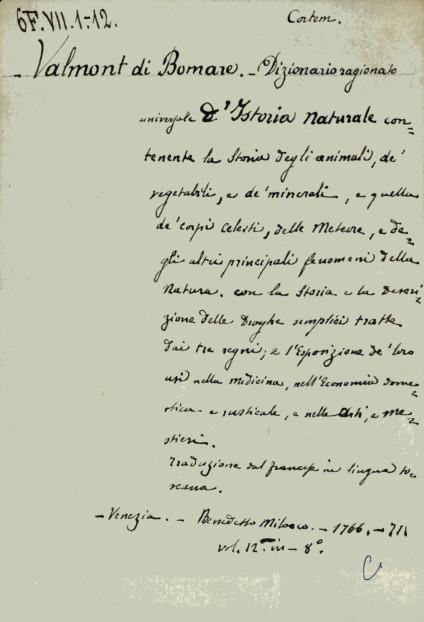 6F.VII.1-12.
Contem.
Valmont di Bomare. - Dizionario ragionato
universale d'Istoria Naturale con=
tenente la Storia degli animali, de'
vegetabili, e de' minerali, e quella
de' corpi Celesti, delle Meteore, e de=
gli altri principali fenomeni della
Natura. con la Storia e la Descri=
zione delle Droghe semplici tratte
dai tre regni; e l'Esposizione de' loro
usi nella medicina, nell'Economia dome=
stica e rusticale, e nelle Arti, e me=
stieri.
Traduzione dal francese in lingua to=
scana.
- Venezia. - Benedetto Milocco. - 1766. - 71
vol. 12 in - 8º.